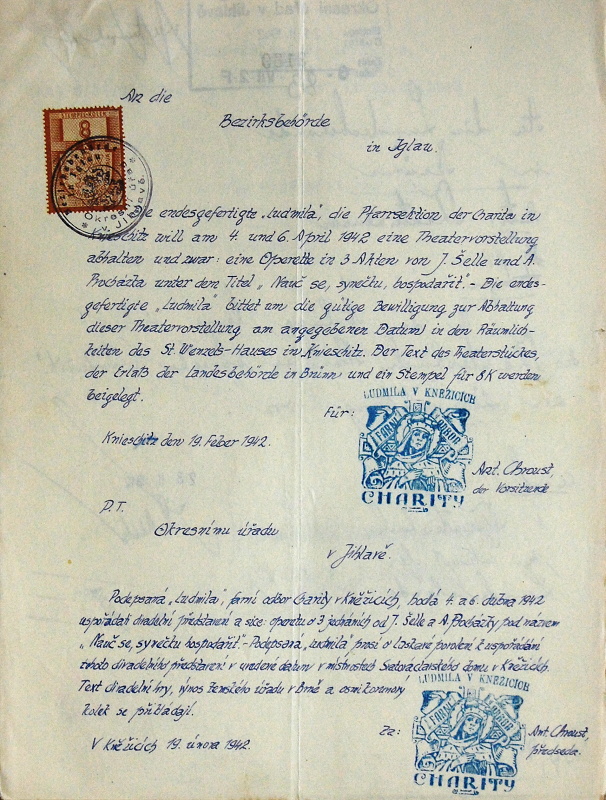 An die
Bezirksbehörde
in Iglau.
STEMPELMARKE
8
Okresní úřad v Jihlavě
endesgefertigte „Ludmila", die Pfarrsektion der Charita in
Knieschitz will am 4. und 6. April 1942 eine Theatervorstellung
abhalten und zwar: eine Operette in 3 Akten von J. Šelle und A.
Procházka unter dem Titel „Nauč se, synečku, hospodařit".- Die endes-
gefertigte „Ludmila" bittet um die gütige Bewilligung zur Abhaltung
dieser Theatervorstellung am angegebenen Datum in den Räumlich-
keiten des St. Wenzels-Hauses in Knieschitz. Der Text des Theaterstückes,
der Erlaß der Landesbehörde in Brünn und ein Stempel für 8 K werden
beigelegt.
Für:
LUDMILA V KNĚŽICÍCH
FARNÍ ODBOR
CHARITY
Knieschitz den 19. Feber 1942.
Ant. Chroust,
der Vorsitzende
P.T.
Okresnímu úřadu
v Jihlavě.
Podepsaná „Ludmila", farní odbor Charity v Kněžicích, hodlá 4. a 6. dubna 1942
uspořádati divadelní představení a sice: operetu o 3 jednáních od J. Šelle a A. Procházky pod názvem
„Nauč se, synečku hospodařit".- Podepsaná „Ludmila" prosí o laskavé povolení k uspořádání
tohoto divadelního představení v uvedené datum v místnostech Svatováclavského domu v Kněžicích.
Text divadelní hry, výnos zemského úřadu v Brně a osmikorunový
kolek se přikládají.
LUDMILA V KNĚŽICÍCH
FARNÍ ODBOR
CHARITY
V Kněžicích 19. února 1942.
Za:
Ant. Chroust,
předseda.